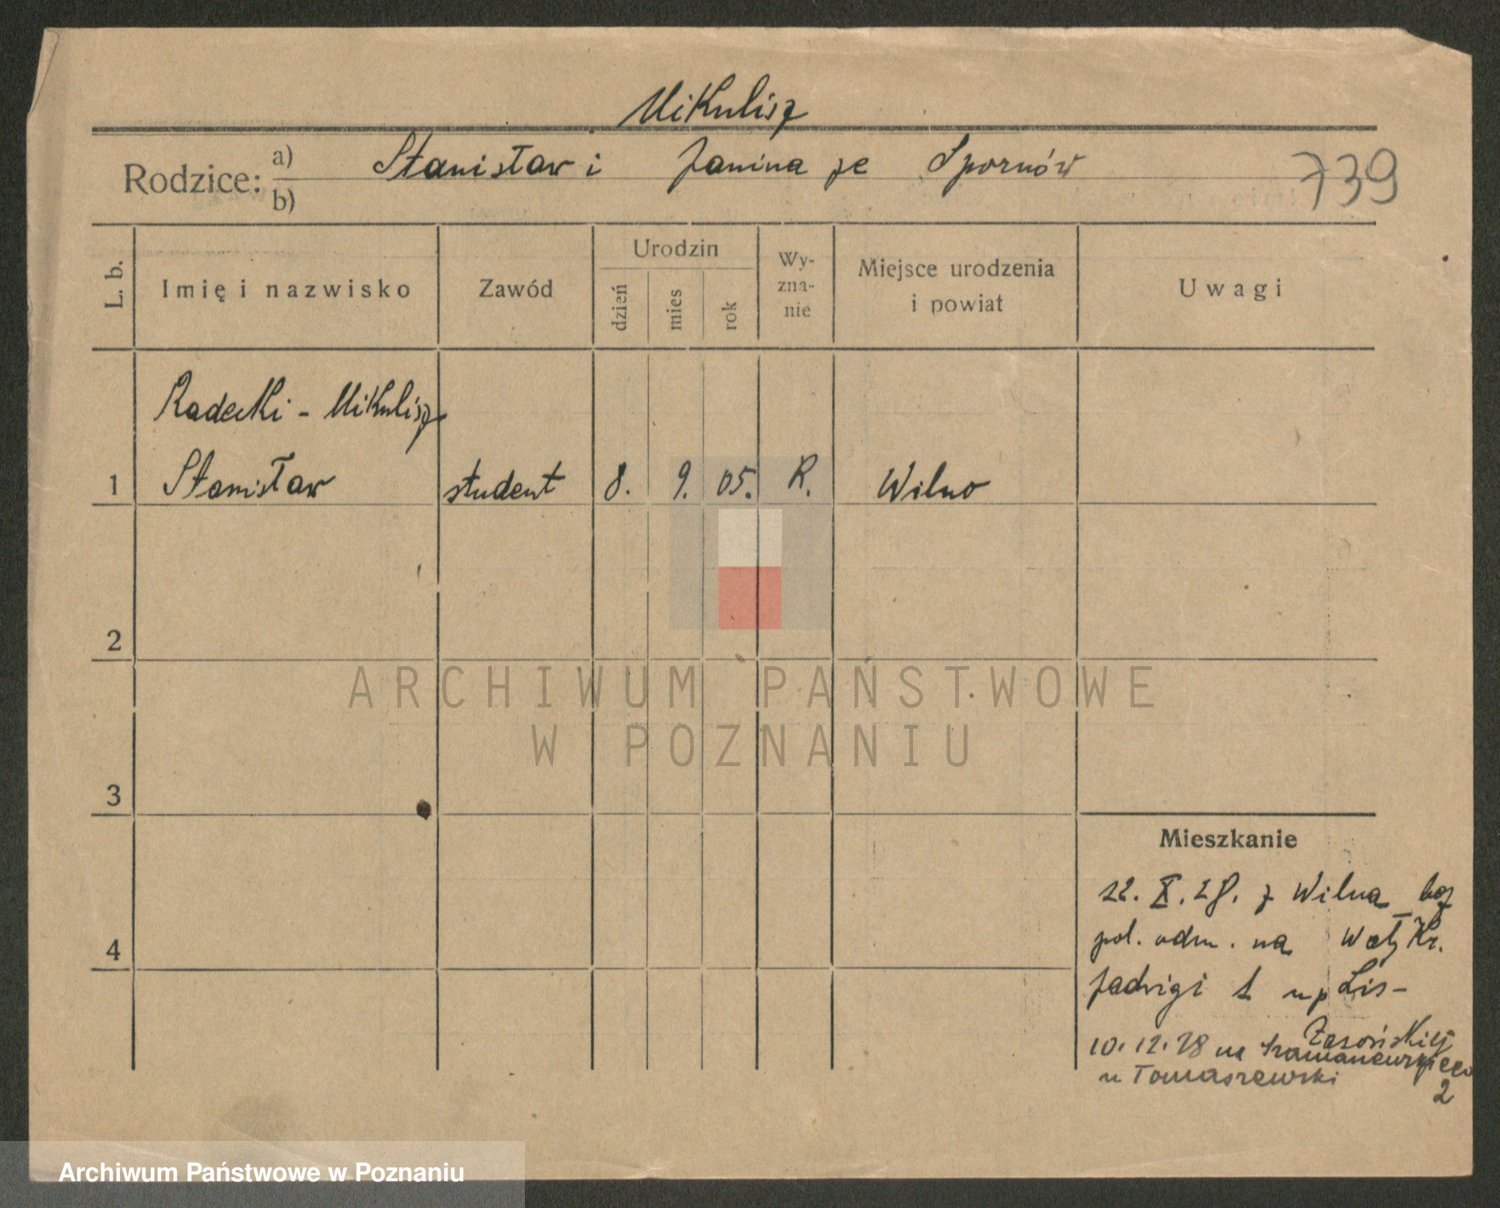 Mikulisz
Rodzice: a) Stanisław i Janina ze Spornów
b)
739
L. b.
Imię i nazwisko
Zawód
Urodzin
dzień
mies
rok
Wy-
zna-
nie
Miejsce urodzenia
i powiat
Uwagi
Radecki - Mikulisz
1 Stanisław student 8. 9. 05. R. Wilno
2
3
4
Mieszkanie
12. X. 28. z Wilna bez
pol. odm. na Wały Kr.
Jadwigi 1 u p Lis-
10. 12. 28 na
u Tomaszewski
2
ARCHIWUM PAŃSTWOWE
W POZNANIU
Archiwum Państwowe w Poznaniu